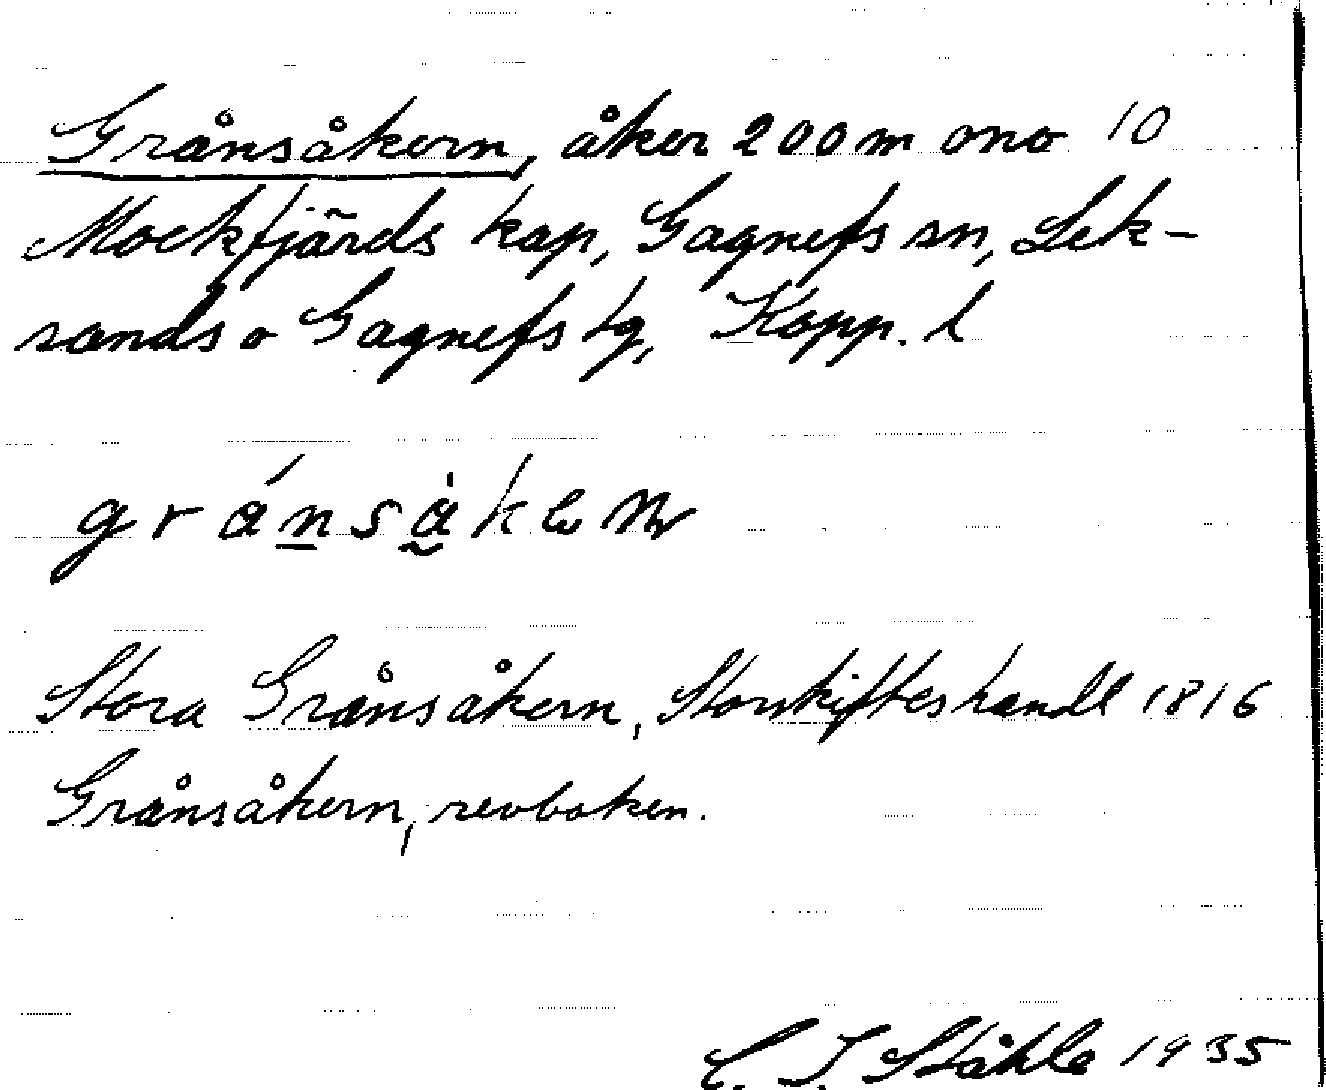 Grånsåkern, åker 200 m ono 10
Mockfjärds kap, Gagnefs sn, Lek-
sands o Gagnefs tg, Kopp. l
gránsàken
Stora Grånsåkern, Storskifteshandl 1816
Grånsåkern, revboken.
C. I. Ståhle 1935